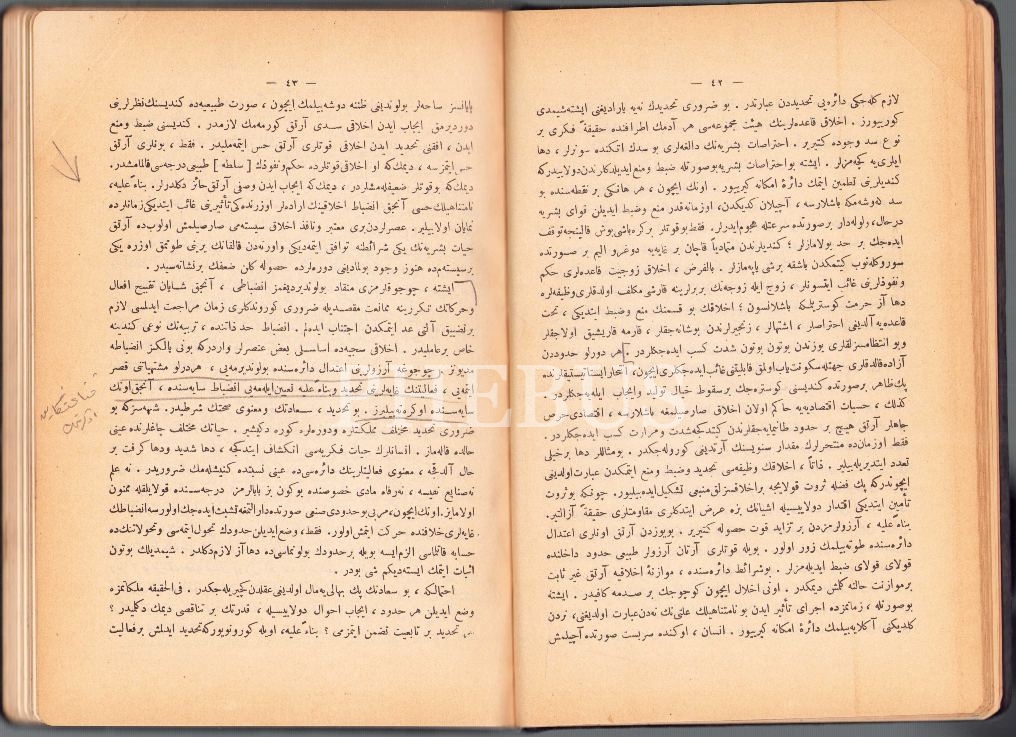 — ٤٢ —
لازم كله‌جكی دائره‌یی تحدیددن عبارتدر . بو ضروری تحدیدك نه‌یه یارادیغنی ایشته شیمدی
كورییورز . اخلاق قاعده‌لرینك هیئت مجموعه‌سی هر آدمك اطرافنده حقیقةً فكری بر
نوع سد وجوده كتیریر . احتراصات بشریه‌نك دالغه‌لری بو سدك اتكنده سونرلر ، دها
ایلری‌یه كچه‌مزلر . ایشته بو احتراصات بشریه بوصورتله ضبط ومنع ایدیلدكلرندن دولاییدركه
كندیلرینی تطمین ایتمك دائرهٔ امكانه كیرییور . اونك ایچون ، هر هانكی بر نقطه‌سنده بو
سد كوشه‌مكه باشلارسه ، آچیلان كدیكدن، اوزمانه‌قدر منع وضبط ایدیلن قوای بشریه
درحال، ولوله‌دار برصورتده سرعتله هجوم ایدرلر. فقط بوقوتلر بركره باشی بوش قالینجه توقف
ایده‌جك بر حد بولامازلر ؛ كندیلرندن متمادیاً قاچان بر غایه‌یه دوغرو الیم بر صورتده
سوروكله‌نوب كیتمكدن باشقه برشی یاپه‌مازلر . بالفرض ، اخلاق زوجیت قاعده‌لری حكم
ونفوذلرینی غائب ایتسونلر ، زوج ایله زوجه‌نك بربرلرینه قارشی مكلف اولدقلری وظیفه‌لره
دها آز حرمت كوستریلمكه باشلانسون ؛ اخلاقك بو قسمنك منع و ضبط ایتدیكی ، تحت
قاعده‌یه آلدیغی احتراصلر ، اشتهالر ، زنجیرلرندن بوشانه‌جقلر ، قارمه قاریشیق اولاجقلر
وبو انتظامسزلقلری یوزندن بوتون بوتون شدت كسب ایده‌جكلردر . هر درلو حدوددن
آزاده قالدقلری جهتله سكونت یاب اولمق قابلیتنی غائب ایده‌جكلری ایچون ،
پك ظاهر برصورتده كندیسنی كوستره‌جك برسقوط خیال تولید وایجاب ایله‌یه‌جكلردر .
كذلك ، حسیات اقتصادیه‌یه حاكم اولان اخلاق صارصیلمغه باشلارسه ، اقتصادی حرص
وجاهلر آرتق هیچ بر حدود طانیمایه‌جقلرندن كیتدكجه شدت وحرارت كسب ایده‌جكلردر .
فقط اوزمان‌ده منتحرلرك مقدار سنویسنك آرتدیغی كوروله‌جكدر . بومثاللر دها برخیلی
تعدد ایتدیریله‌بیلیر . ذاتاً ، اخلاقك وظیفه‌سی تحدید وضبط ومنع ایتمكدن عبارت اولدیغی
ایچوندركه پك فضله ثروت قولایجه بر اخلاقسزلق منبعی تشكیل ایده‌بیلیور. چونكه بوثروت
تأمین ایتدیكی اقتدار دولاییسیله اشیانك بزه عرض ایتدكلری مقاومتلری حقیقةً آزالتیر.
بناءً علیه ، آرزولرمزدن بر تزاید قوت حصوله كتیریر . بویوزدن آرتق اونلری اعتدال
دائره‌سنده طوته‌بیلمك زور اولور . بویله قوتلری آرتان آرزولر طبیعی حدود داخلنده
قولای قولای ضبط ایدیله‌مزلر . بوشرائط دائره‌سنده ، موازنهٔ اخلاقیه آرتق غیر ثابت
برموازنت حالنه كلمش دیمكدر . اونی اخلال ایچون كوچوجك بر صدمه كافیدر . ایشته
بوصورتله ، زمانمزده اجرای تأثیر ایدن بو نامتناهیلك علتی‌نك نه‌دن عبارت اولدیغنی، نره‌دن
كلدیكنی آكلایه‌بیلمك دائرهٔ امكانه كیرییور . انسان ، اوكنده سربست صورتده آچیلمش
— ٤٣ —
پایانسز ساحه‌لر بولوندیغی ظننه دوشه‌بیلمك ایچون ، صورت طبیعیه‌ده كندیسنك نظرلرینی
دوردیرمق ایجاب ایدن اخلاقی سدی آرتق كورمه‌مك لازمدر. كندیسنی ضبط ومنع
ایدن ، افقنی تحدید ایدن اخلاقی قوتلری آرتق حس ایتمه‌ملیدر . فقط ، بونلری آرتق
حس ایتمزسه ، دیمك‌كه او اخلاقی قوتلرده حكم ونفوذك [ سلطه ] طبیعی درجه‌سی قالمامشدر.
دیمك‌كه بوقوتلر ضعیفله‌مشلردر ، دیمك‌كه ایجاب ایدن وصفی آرتق حائز دكلدرلر. بناءً علیه،
نامتناهیلك حسی آنجق انضباط اخلاقینك اراده‌لر اوزرنده‌كی تأثیرینی غائب ایتدیكی زمانلرده
نمایان اولابیلیر. عصرلردن‌بری معتبر ونافذ اخلاق سیسته‌می صارصیلمش اولوب‌ده آرتق
حیات بشریه‌نك یكی شرائطنه توافق ایتمه‌دیكی واورته‌دن قالقانك یرینی طوتمق اوزره یكی
برسیسته‌م‌ده هنوز وجود بولمادیغی دوره‌لرده حصوله كلن ضعفك برنشانه‌سیدر.
ایشته ، چوجوقلرمزی منقاد بولوندیردیغمز انضباطی ، آنجق شایان تقبیح افعال
وحركاتك تكررینه ممانعت مقصدیله ضروری كوروندكلری زمان مراجعت ایدلسی لازم
برتضییق آلتی عد ایتمكدن اجتناب ایده‌لم . انضباط حد ذاتنده ، تربیه‌نك نوعی كندینه
خاص برعاملیدر . اخلاقی سجیه‌ده اساسلی بعض عنصرلر واردركه بونی یالكز انضباطه
مدیونز . چوجوغه آرزولرینی اعتدال دائره‌سنده بولوندیرمه‌یی ، هردرلو مشتهیاتی قصر
ایتمه‌یی ، فعالیتنك غایه‌لرینی تحدید وبناءً علیه تعیین ایله‌مه‌یی انضباط سایه‌سنده ، آنجق اونك
سایه‌سنده اوكره‌ته‌بیلیرز . بو تحدید ، سعادتك و معنوی صحتك شرطیدر. شبهه‌سزكه بو
ضروری تحدید مختلف مملكتلره ودوره‌لره كوره دكیشیر . حیاتك مختلف چاغلرنده عینی
حالده قاله‌ماز. انسانلرك حیات فكریه‌سی انكشاف ایتدكجه ، دها شدید ودها كرفت بر
حال آلدقجه ، معنوی فعالیتلرینك دائره‌سی‌ده عینی نسبتده كنیشله‌مك ضروریدر . نه علم
نه‌صنایع نفیسه ، نه‌رفاه مادی خصوصنده بوكون بز بابالرمز درجه‌سنده قولایلقله ممنون
اولمایز. اونك ایچون، مربی بوحدودی صنعی صورتده دارالتمغه تشبث ایده‌جك اولورسه انضباطك
غایه‌لری خلافنده حركت ایتمش اولور. فقط، وضع ایدیلن حدودك تحول ایتمسی وتحولاتنك‌ده
حسابه قاتلماسی الزم ایسه بویله برحدودك بولونماسی‌ده دها آز لازم دكلدر . شیمدیلك بوتون
اثبات ایتمك ایسته‌دیكم شی بودر .
احتمالكه ، بو سعادتك پك بهالی‌یه‌مال اولدیغی عقلدن كچیریله‌جكدر . فی‌الحقیقه ملكاتمزه
وضع ایدیلن هر حدود ، ایجاب احوال دولاییسیله ، قدرتك بر تناقصی دیمك دكلمیدر ؟
هر تحدید بر تابعیت تضمن ایتمزمی ؟ بناءً علیه، اویله كورونویوركه تحدید ایدلمش برفعالیت
PHEBUS